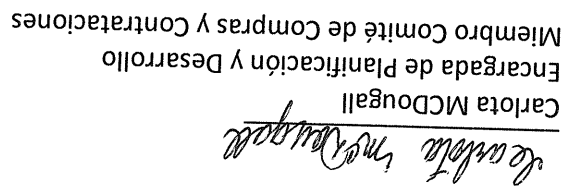 Carlota McDougall
Carlota MCDougall
Encargada de Planificación y Desarrollo
Miembro Comité de Compras y Contrataciones